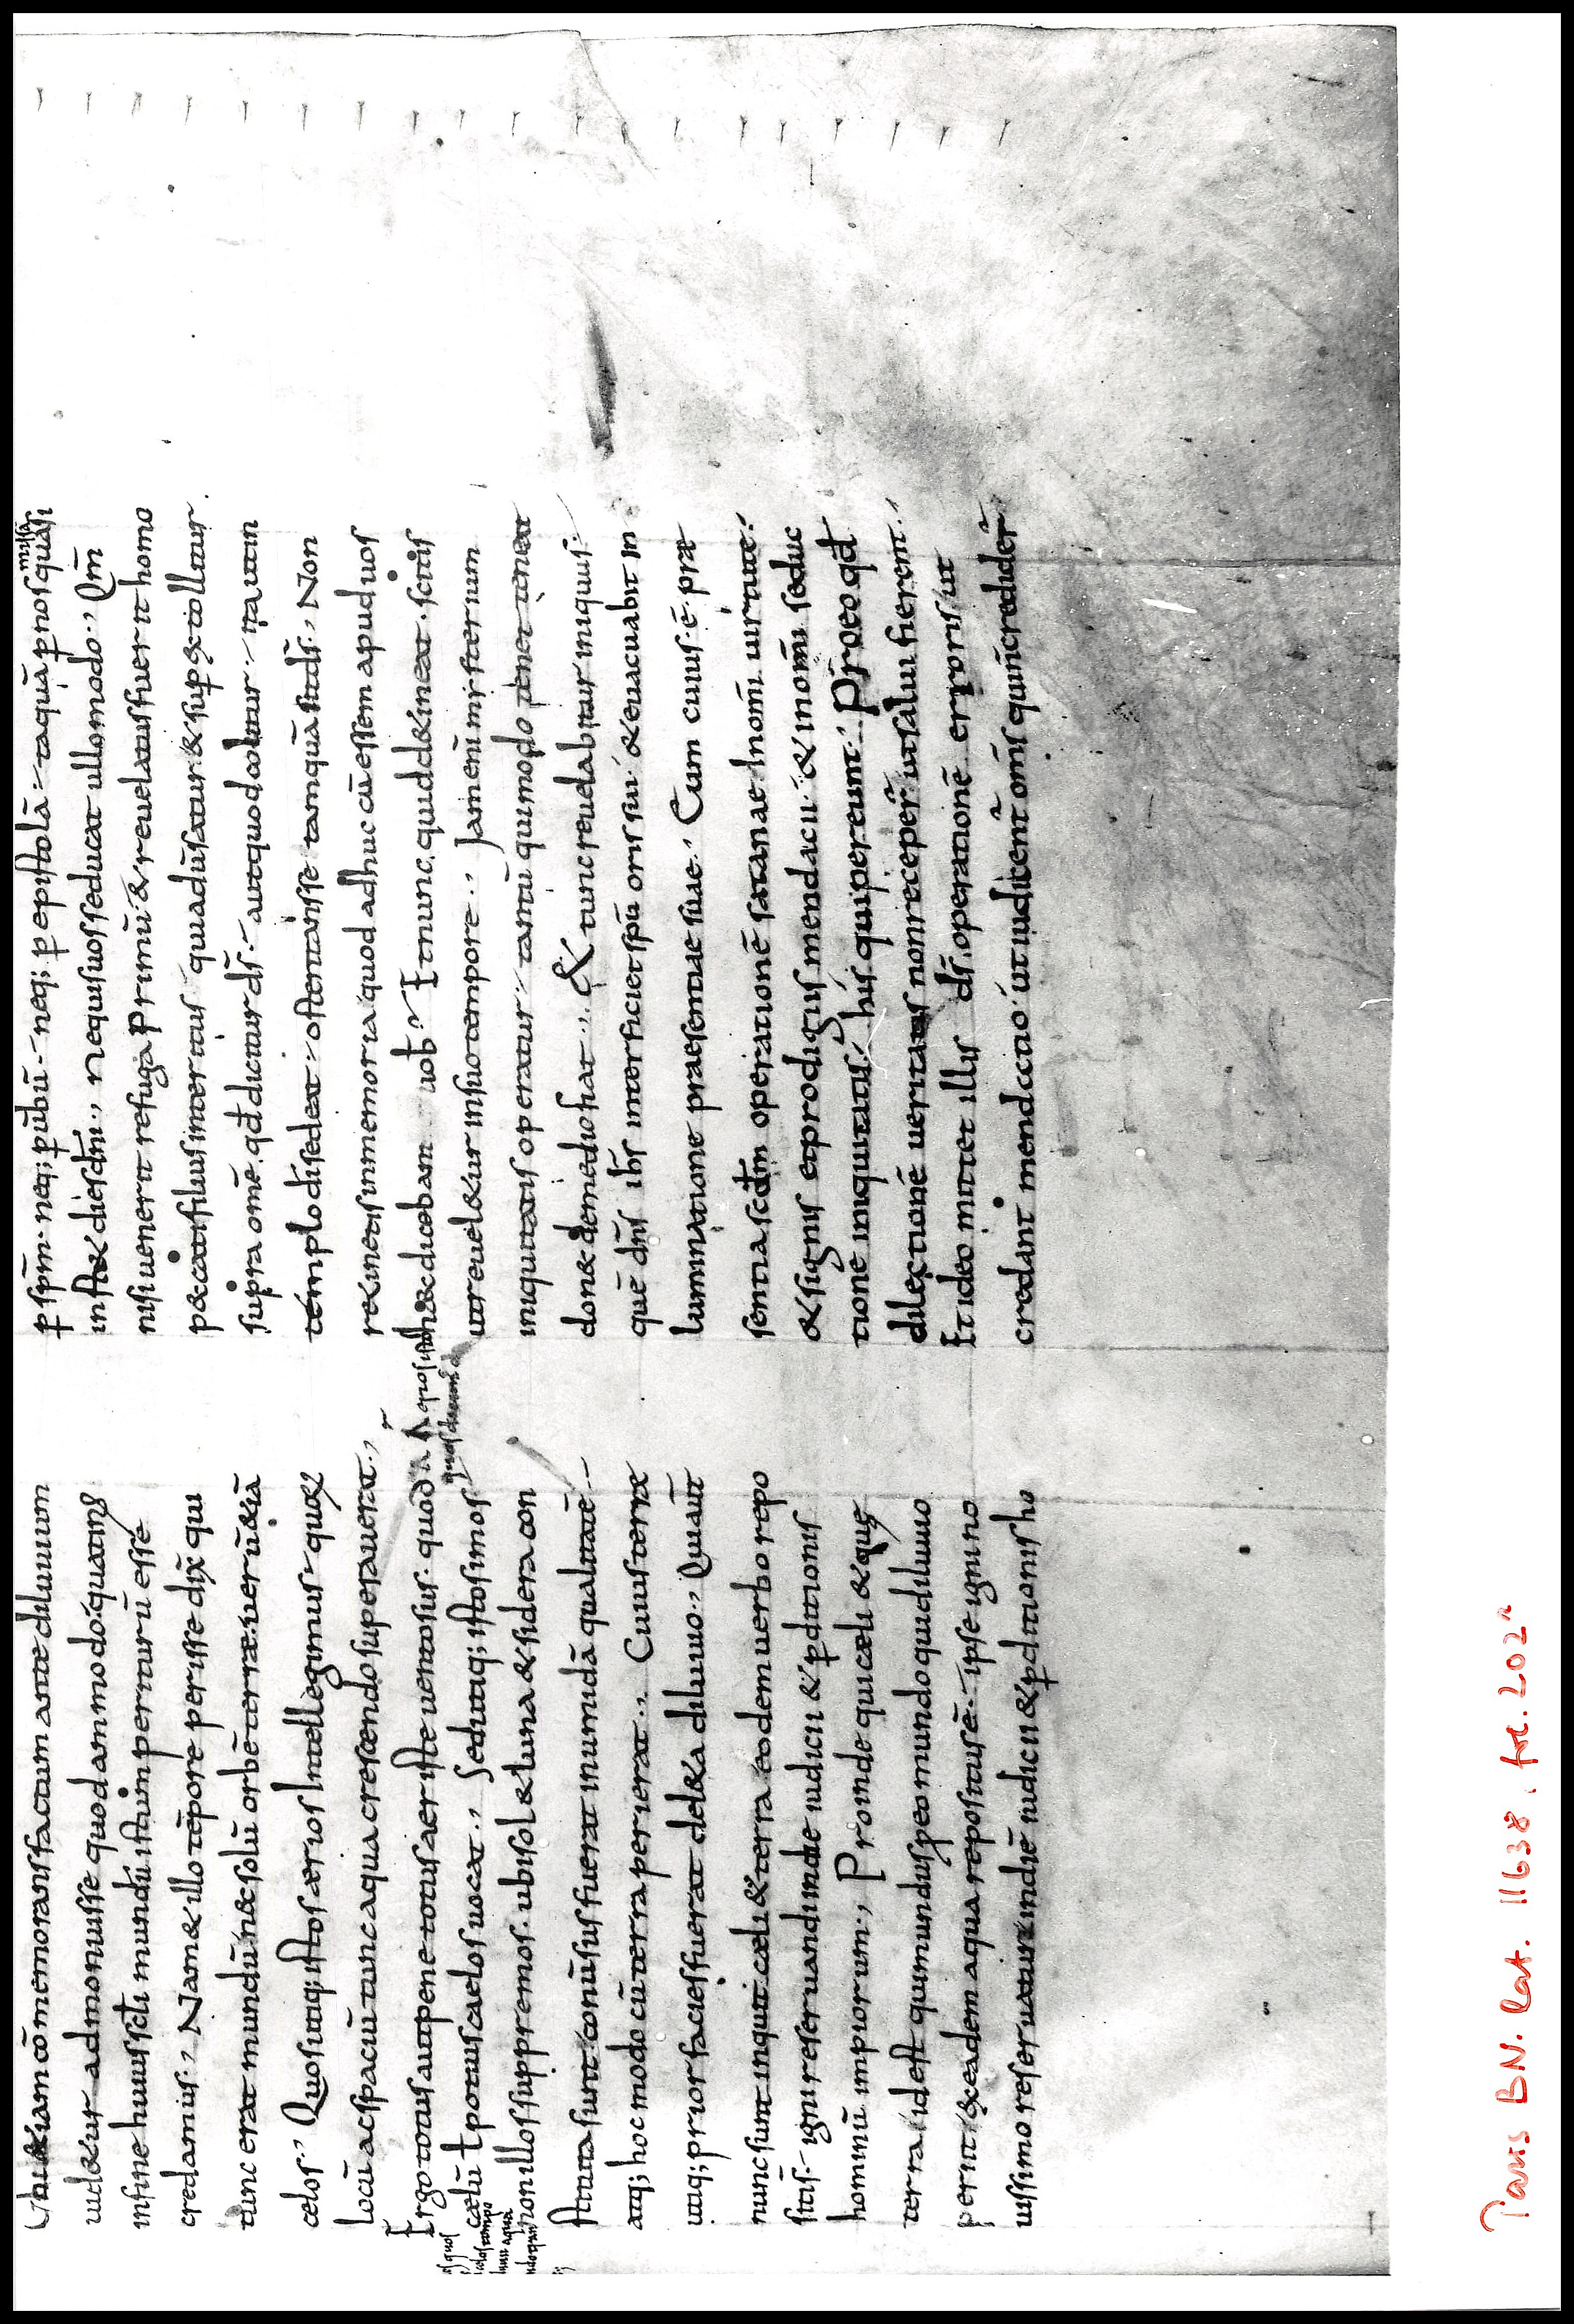 Ubi&iam cōmemorans factum ante diluuium
uid&ur admonuisse quodammodo quatinus
in fine huius sc̄li mundū istum periturū esse
credamus., Nam & illo tēpore perisse dix̄ qui
tunc erat mundū. n& solū orbē terrae. uerū &iā
cęlos., Quos utiq; istos aerios Intellegimus. quoꝝ
locū ac spaciū tunc aqua crescendo superauerat.,
Ergo totus aut pene totus aer iste uentosus. quod
cælū ł potius caelos uocat., Sed utiq; istos imos
non illos suppremos. ubi sol & luna & sidera con
stituta sunt conūsus fuerat in umidā qualitatē.
atq; hoc modo cū terra perierat., Cuius terrae
utiq; prior facies fuerat del&a diluuio., Qui aūt
nunc sunt inquit cæli & terra eodem uerbo repo
siti s̄. igni reseruandi in die iudicii & ꝑditionis
hominū impiorum., Proinde qui cæli & quę
terra id est qui mundus p eo mundo qui diluuio
periit ex eadem aqua repositus ē. ipse igni no
uissimo reseruatur in diē iudicii & ꝑditionis ho
ꝑ sp̄m. neq; ꝑ uerbū. neq; ꝑ epistolā. taquā ꝑ nos missā quasi
inst& dies dn̄i., ne quis uos seducat ullo modo., Qm̄
nisi uenerit refuga primū & reuelatus fuerit homo
peccati filius interitus qui aduersatur & suꝑ extollitur
supra omē. qd̄ dicitur ds̄. aut quod colitur. ita ut in
templo dī sedeat. ostentans se tamquā sit ds̄., Non
retinetis in memoria quod adhuc cū essem apud uos
hæc dicebam uob̄. Et nunc quid detineat. scitis
ut reuel&ur in suo tempore., Iam enī misterium
iniquitatis operatur. tantū qui modo tenet teneat
donec de medio fiat., & tunc reuelabitur iniquus.
quē dn̄s ih̄s interficiet sp̄u oris sui. & euacuabit in
luminatione praesentiae suae., Cum cuius ē præ
sentia scd̄m operationē satanae In omī uirtute.
& signis et prodigiis mendacii. & in omī seduc
tione iniquitatis. his qui pereunt. Pro eo qd̄
dilectionē ueritatis non receper̄ ut salui fierent.,
Et ideo mittet illis ds̄. operationē erroris ut
credant mendatio. ut iudicent̄ om̄s qui n̄ credider̄
Paris BN. lat. 11638. fol. 202ʳ